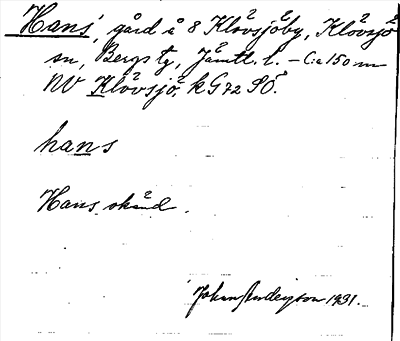 Hans, gård å 8 Klövsjöby, Klövsjö
sn, Bergs tg, Jämtl. l. – C:a 150 m
NV Klövsjö k G 72 SÖ.
hans
Hans
Johan Anderson 1931.